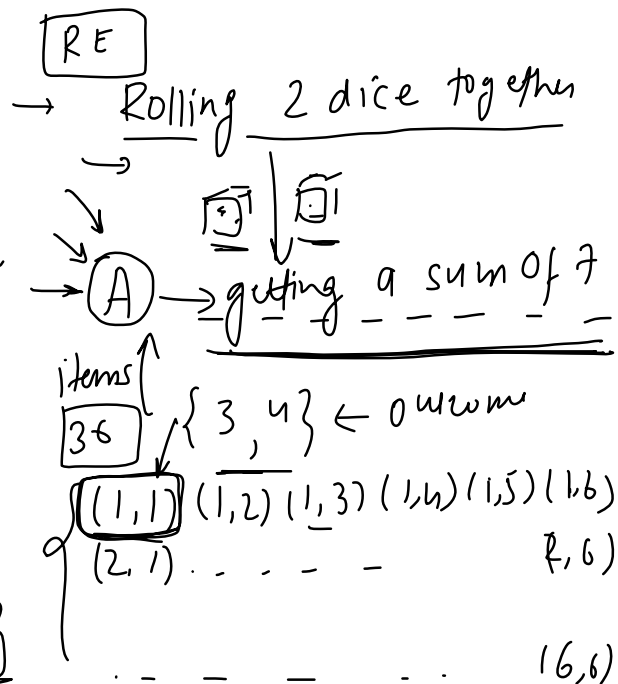 RE
→ Rolling 2 dice together
A → getting a sum of 7
items
36
{3, 4} ← outcome
(1,1) (1,2) (1,3) (1,4) (1,5) (1,6)
(2,1) . . - - - 2,6)
. - - - . . (6,6)